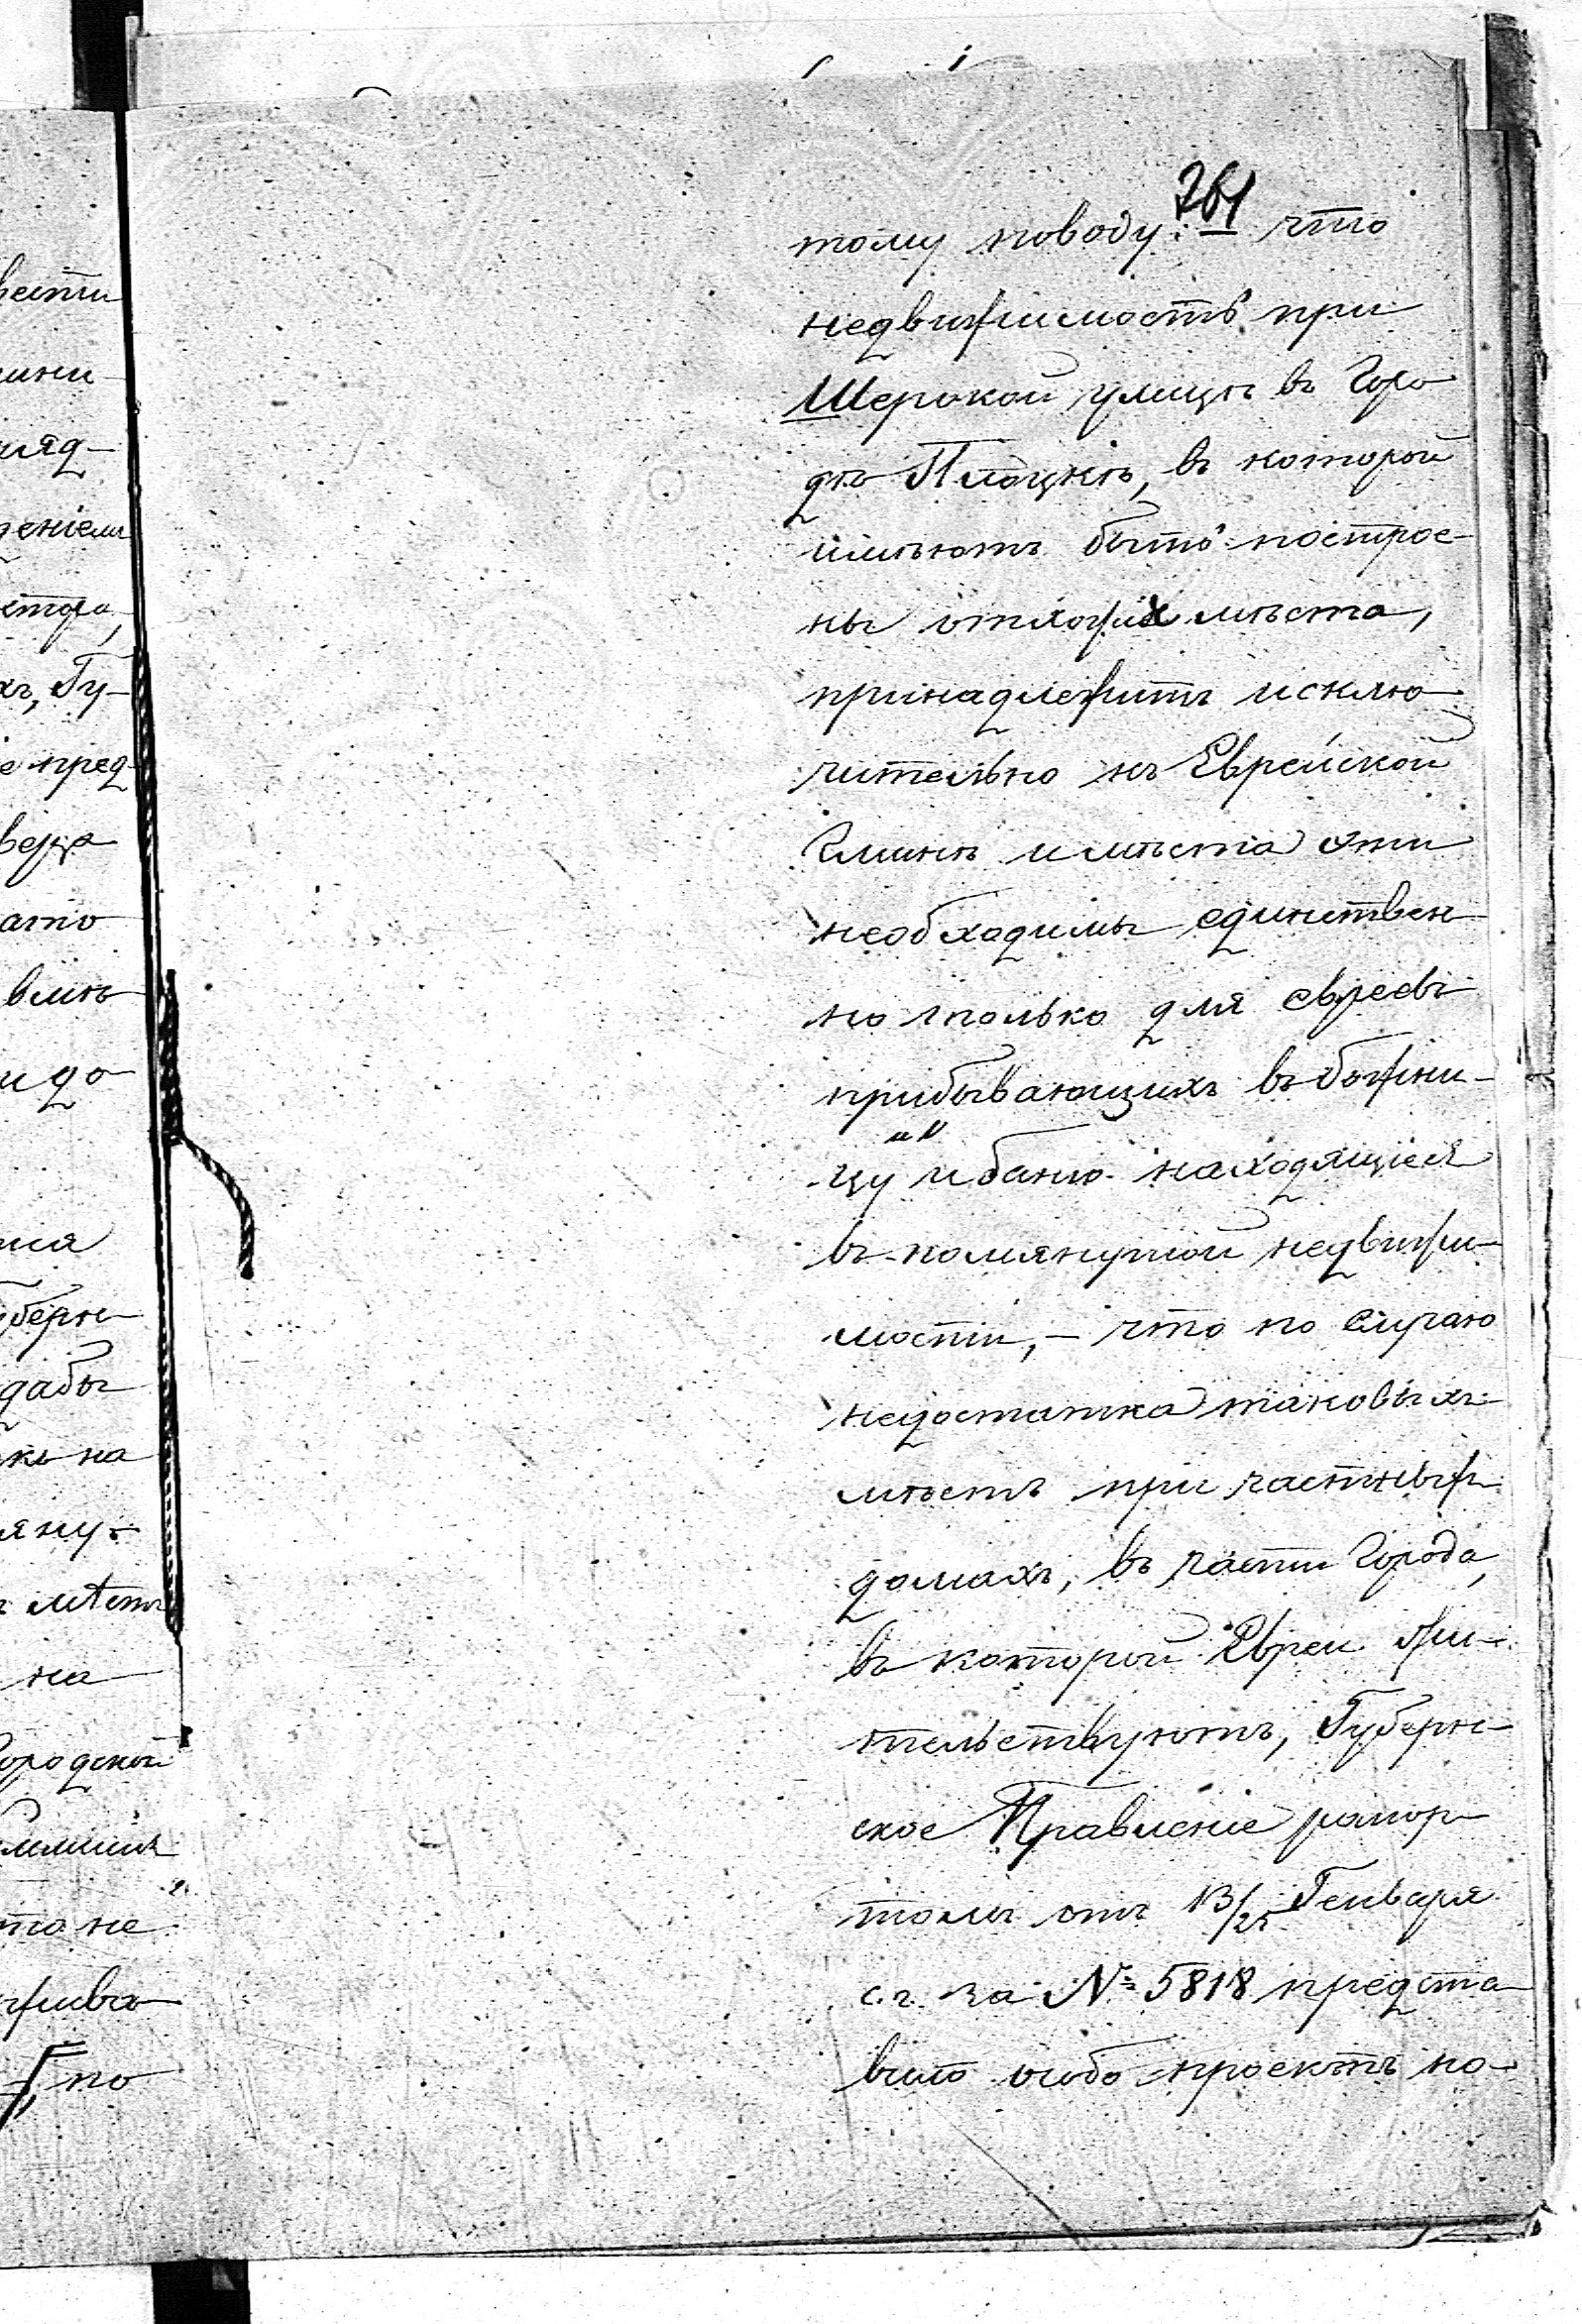 261
тому поводу: что
недвижимость при
Шерокой улицѣ въ Горо
дѣ Плоцкѣ, въ которой
имѣютъ быть построе-
ны отхожіх мѣста,
принадлежитъ исклю-
чительно къ Еврейской
Гминѣ и мѣста эти
необходимы единствен-
но только для евреевъ
прибывающихъ въ божни-
цу и баню находящіеся
въ помянутой недвижи-
мости, – что по случаю
недостатка таковыхъ
мѣстъ при частныхъ
домахъ, въ части Города,
въ которой Евреи жи-
тельствуютъ, Губерн-
ское Правленіе рапор-
томъ отъ 13/25 Генваря
с. г. за № 5818 предста
вило особо проектъ по-
вести
ляд-
деніемъ
хъ, Гу-
е пред-
ато
и до
дабы
на
яну-
мѣстъ
на
Городской
то не
по